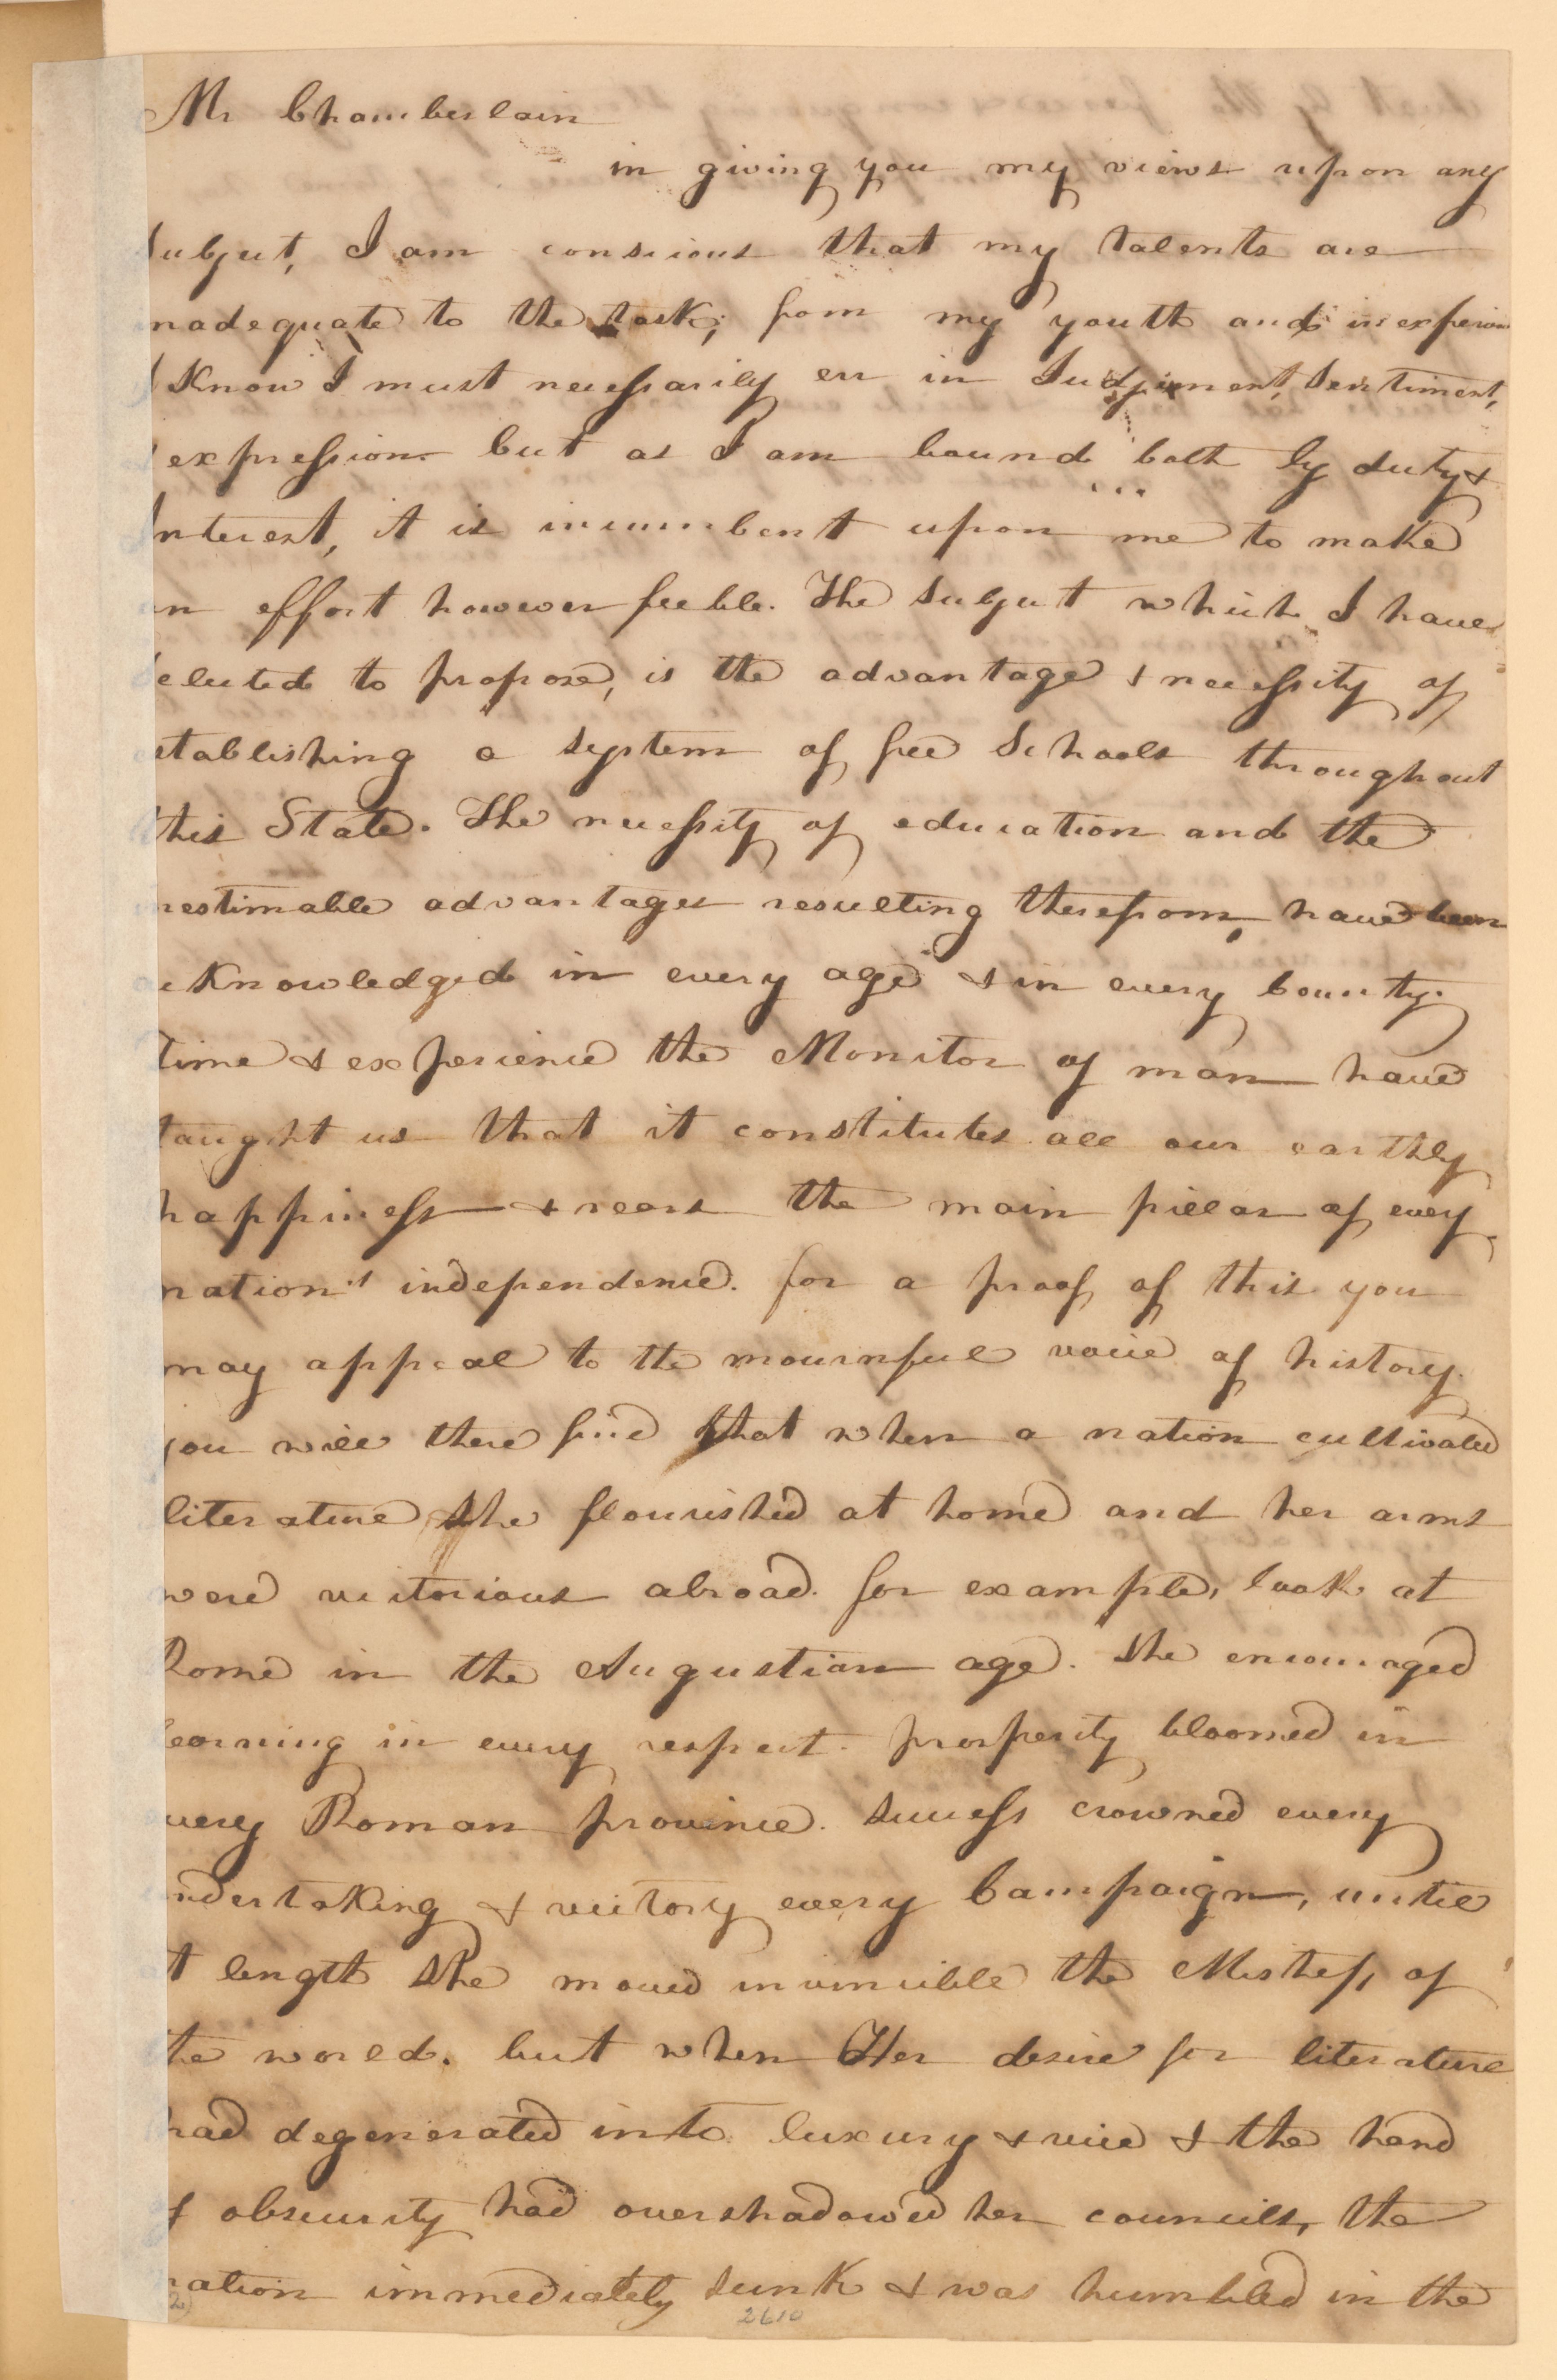 Mr Chamberlain
in giving you my views upon any
Subject, I am conscious that my talents are
inadequate to the task; from my youth and inexperience
I Know I must necessarily err in Judgement, Sentiment,
& expression but as I am bound both by duty &
Interest, it is incumbent upon me to make
an effort however feeble. The Subject which I have
Selected to propose, is the advantage & necessity of
establishing a System of free Schools throughout
this State. The necessity of education and the
inestimable advantages resulting therefrom, have been
acknowledged in every age & in every Country.
time & experience the Monitor of man have
taught us that it constitutes all our earthly
happiness & rears the main pillar of every
nation's independence. for a proof of this you
may appeal to the mournful voice of history.
you will there find that when a nation cultivated
literature She flourished at home and her arms
were victorious abroad. for example, look at
Rome in the Augustian age. She encouraged
learning in every respect. prosperity bloomed in
every Roman province. Success crowned every
undertaking & victory every Campaign, until
at length She moved invincible the Mistress of
the world. but when Her desire for literature
had degenerated into luxury & vice & the hand
of obscurity had overshadowed her councils, the
nation immediately sunk & was humbled in the
2610